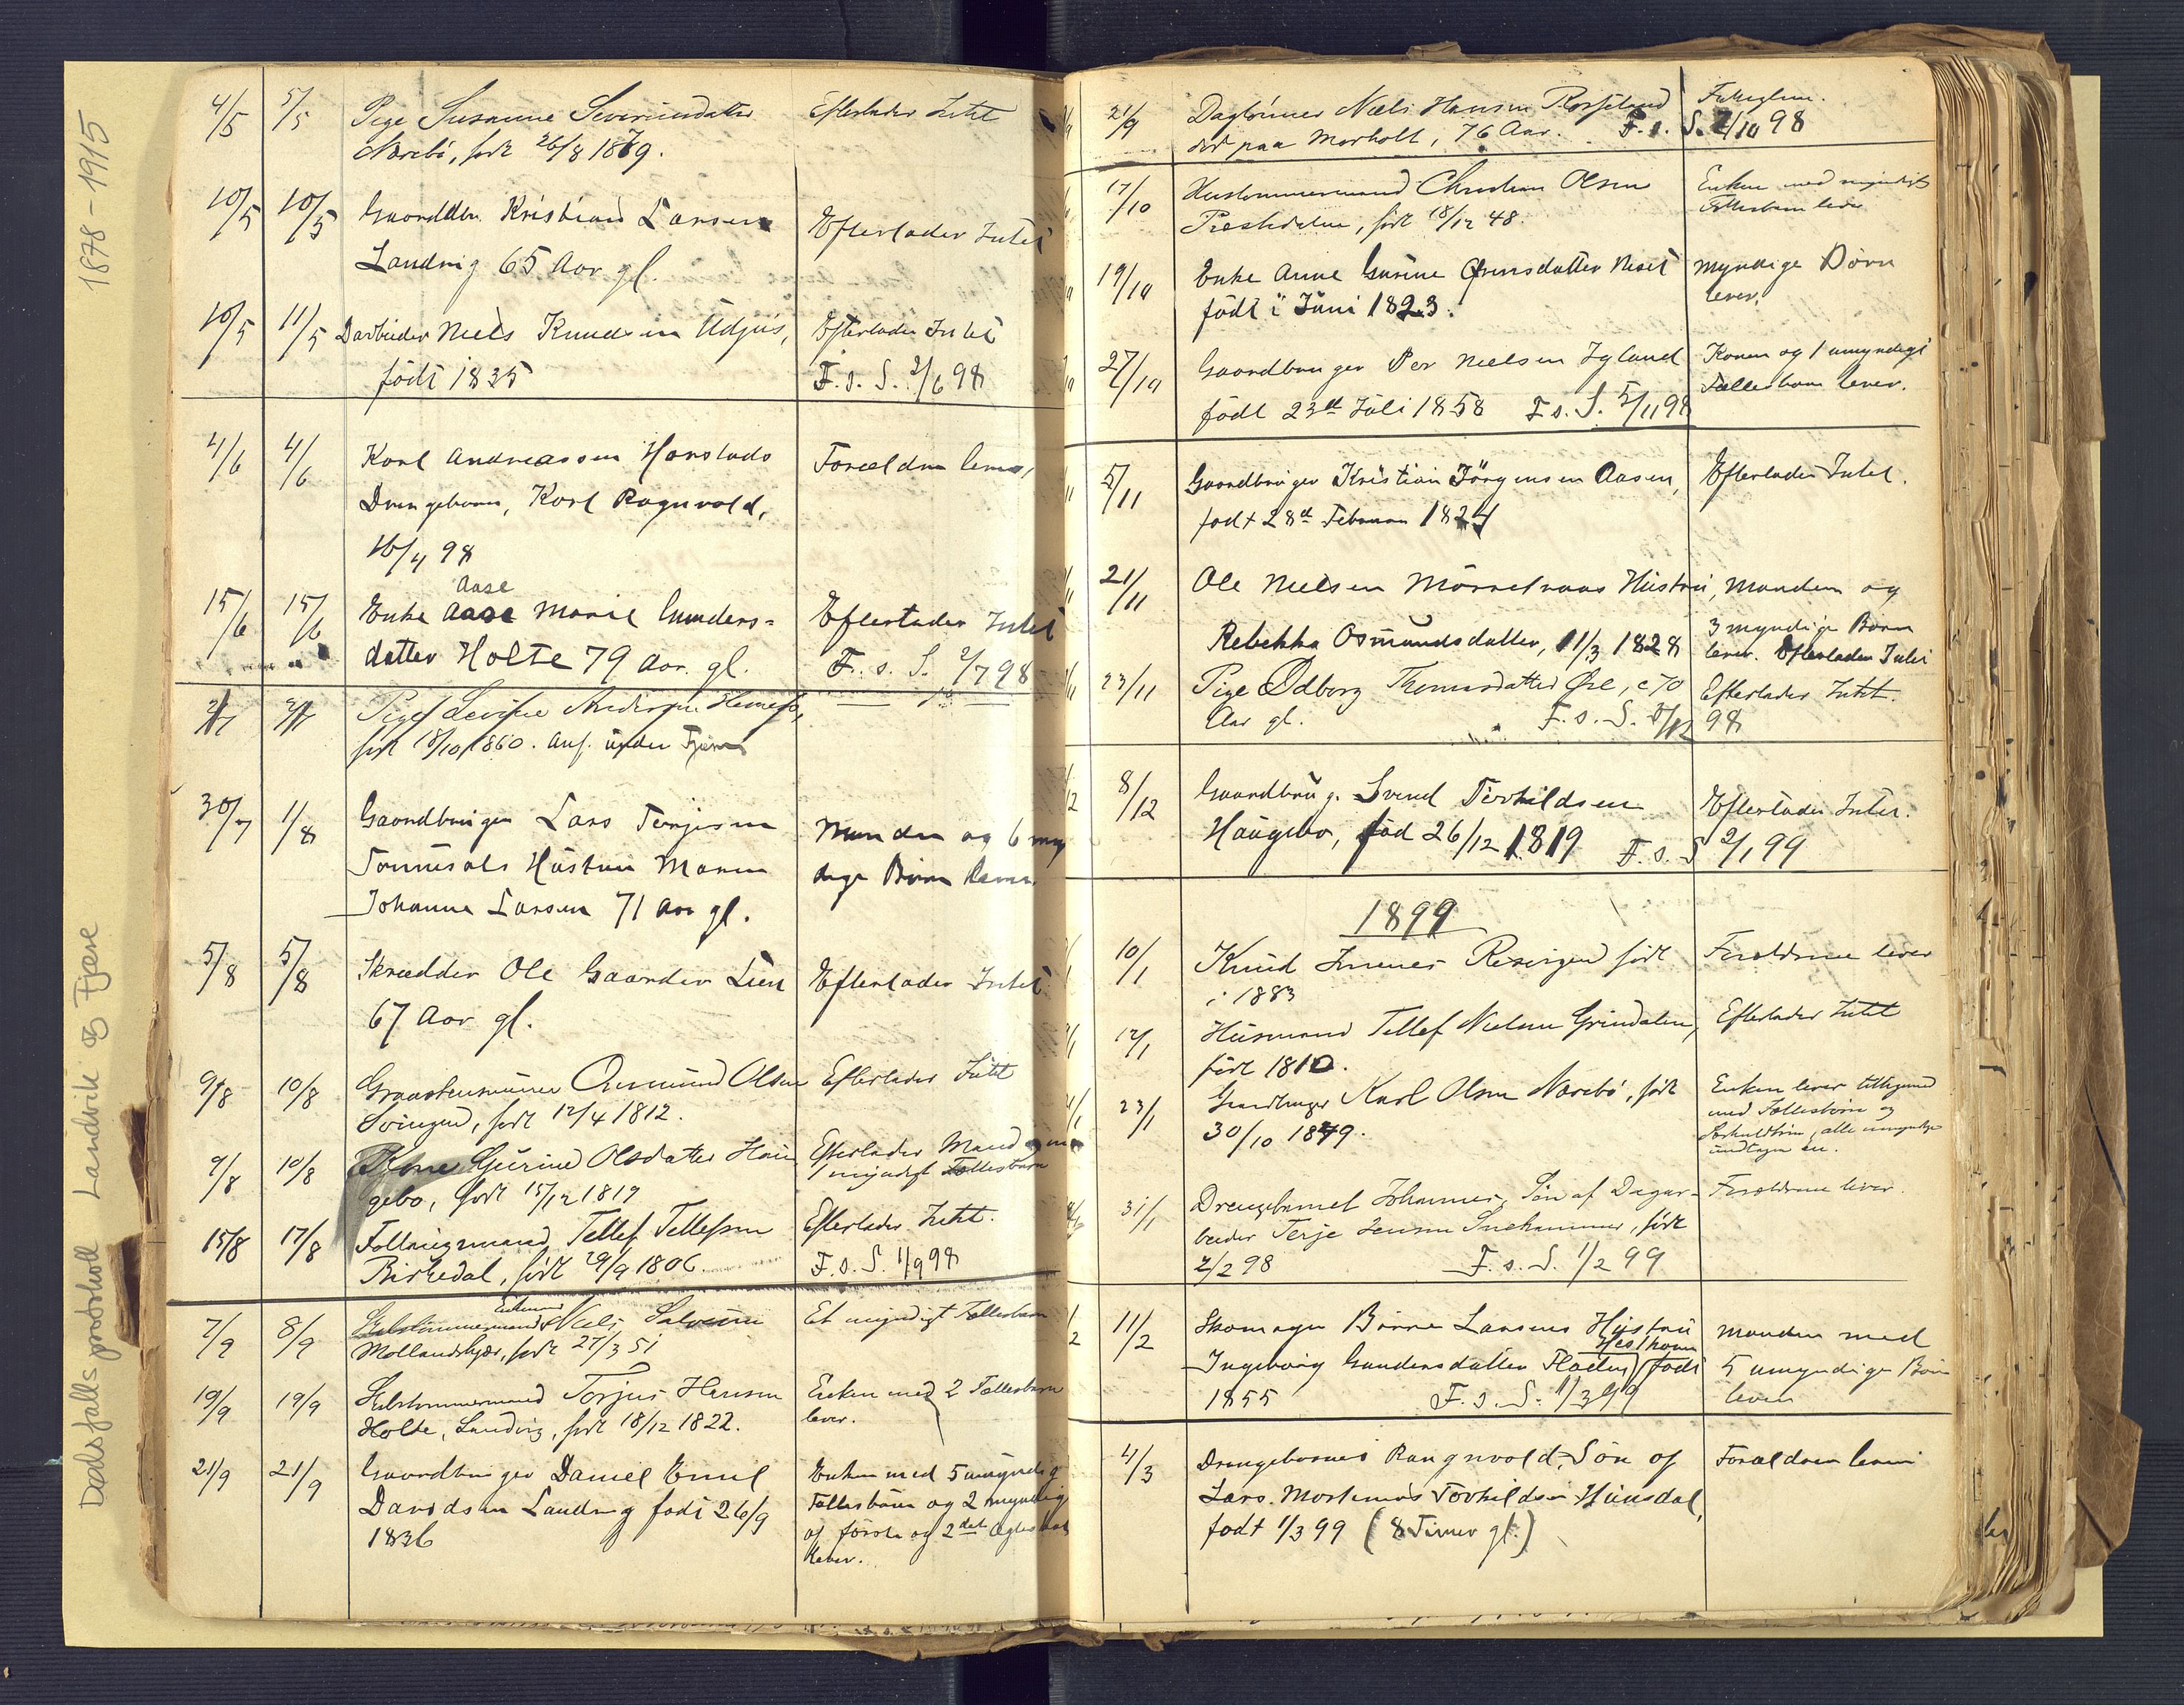 1878 - 1915
Dødsfalls protokoll Landvik og Fjære
4/5 5/5 Pige Susanne Severinsdatter Efterlader Intet
Nærebö, født 26/8 1879.
10/5 10/5 Gaardbr. Kristian Larsen Efterlader Intet
Landvig 65 Aar gl.
10/5 11/5 Niels Knudsen Udjus, Efterlader Intet
födt 1835 F. s. S. 2/6 98
4/6 4/6 Karl Andreassen Harstads Forældrene lever,
Drengebarn, Karl Ragnvald,
16/4 98
Aase
15/6 15/6 Enke Aase Marie Gunders= Efterlader Intet
datter Holte 79 Aar gl. F. s. S. 2/7 98
2/7 2/7 Pige
født 18/10 1860. Anf. under Fjære
30/7 1/8 Gaardbruger Lars Terjesen Manden og 6 myn
Tønnesøls Hustru Maren dige Børn lever
Johanne Larsen 71 Aar gl.
5/8 5/8 Skrædder Ole Gaarder Lien Efterlader Intet
67 Aar gl.
9/8 10/8 Osmund Olsen Efterlader Intet
Svingen, født 12/4 1812.
9/8 10/8 Kone Gurine Olsdatter Hau Efterlader Mand og
gebo, født 15/12 1819 1 myndigt Fællesbarn
15/8 17/8 Tellef Tellefsen Efterlader Intet.
Birkedal, født 29/9 1806. F. s. S. 1/9 98
Enkemand
7/9 8/9 Selvtømmermand Niels Salvesen Et myndigt Fællesbarn
Mollandskjær, født 27/3 51
19/9 19/9 Torjus Hansen Enken med 2 Fællesbarn
Holte, Landvig, født 18/12 1822. lever.
21/9 21/9 Gaardbruger Daniel Emil Enken med 5 umyndig
Davidsen Landvig født 26/9 Fællesbörn og 2 myndig
1836 af förste og 2det Ægteskab
lever.
21/9 Daglønner Niels Hansen Rosseland
død paa Morholt, 76 Aar. F. s. S. 2/10 98
17/10 Hustømmermand Christian Olsen Enken med myndigt
Prestedalen, født 18/12 48. Fællesbarn lever
19/10 Enke Anne Gurine Jensdatter Neset Myndige Börn
födt i Juni 1823. lever.
27/10 Gaardbruger Per Nielsen Igland Konen og 1 umyndigt
födt 23de Juli 1858 F. s. S. 5/11 98 Fællesbarn lever.
5/11 Gaardbruger Kristian Jörgensen Aasen, Efterlader Intet.
födt 28de Februar 1824
21/11 Ole Nielsen Mörretraas Hustru, Manden og
Rebekka Osmundsdatter, 11/3 1828 3 myndige Børn
lever. Efterlader Intet
23/11 Pige Odborg Thomasdatter Øre, c 70 Efterlader Intet.
Aar gl. F. s. S. 5/12 98
8/12 Gaardbrug. Svend Terkildsen Efterlader Intet.
Haugebo, föd 26/12 1819 F. s. S 2/1 99
1899
10/1 Knud Jrenes født Forældrene lever
i 1883
12/1 Husmand Tellef Nielsen Grindalen, Efterlader Intet
født 1810.
23/1 Gaardbruger Karl Olsen Nærebö, født Enken lever tilligemed
30/10 1849. med Fællesbörn og
alle umyndige
undtagen en.
31/1 Drengebarnet Johannes, Søn af Dagar- Forældrene lever.
beider Terje Jensen født
2/2 98 F. s. S. 1/2 99
11/2 Skomager Börre Larsens Hustru Manden med
Hesthaven
Ingeborg Gundersdatter födt 5 umyndige Börn
1855 F. s. S. 1/3 99 lever
4/3 Drengebarnet Rangnvald, Sön af Forældrene lever
Lars Mortinus Torkildsen Hunsdal,
födt 1/3 99 (8 Timer gl.)